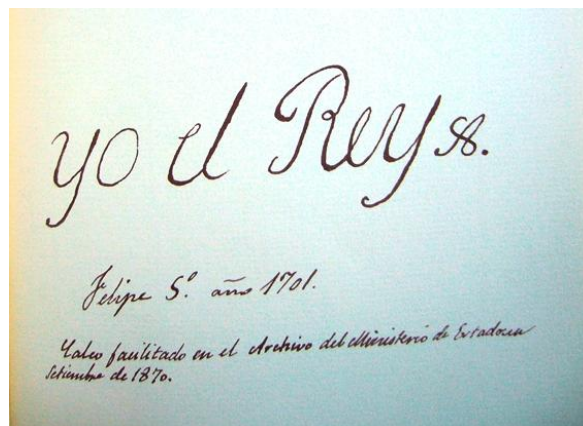 yo el Rey
Felipe 5º. año 1701.
Calco facilitado en el Archivo del Ministerio de Estado en
Setiembre de 1870.